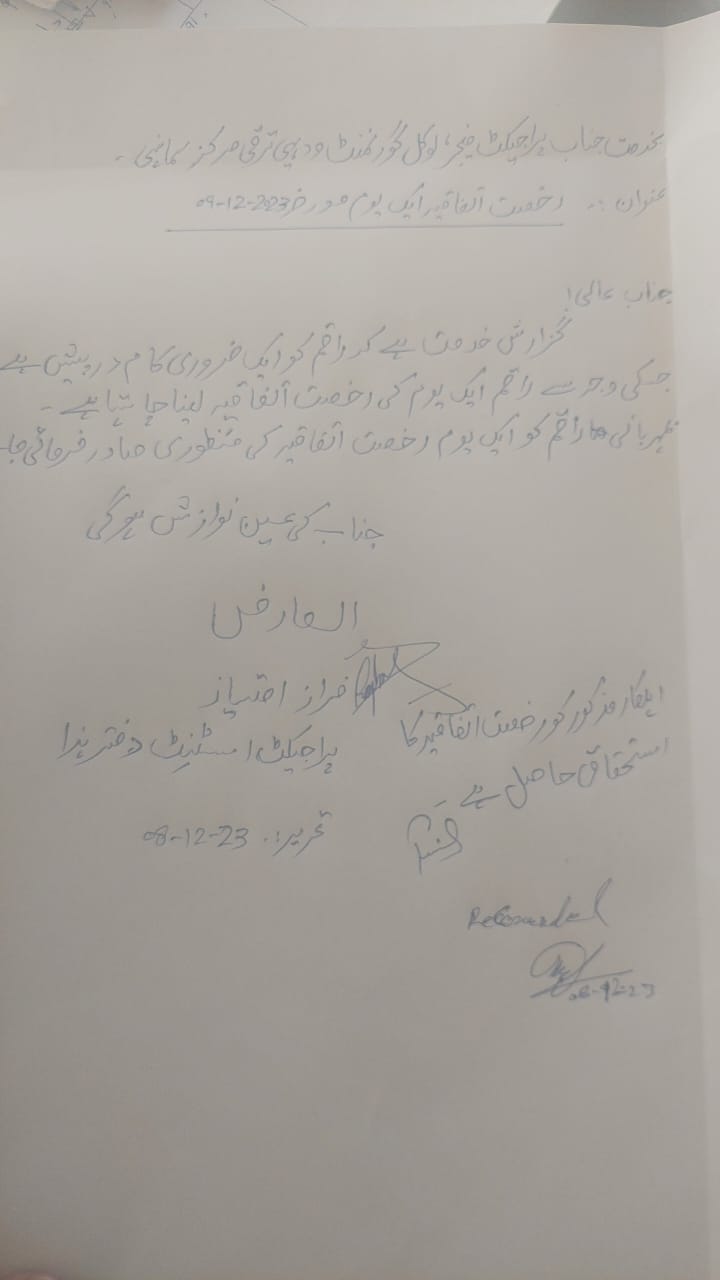 بخدمت جناب پراجیکٹ منیجر، لوکل گورنمنٹ و دیہی ترقی مرکز سماہنی۔
عنوان :۔ رخصت اتفاقیہ ایک یوم مورخہ 09-12-2023
جناب عالی!
گزارش خدمت ہے کہ راقم کو ایک ضروری کام درپیش ہے
جسکی وجہ سے راقم ایک یوم کی رخصت اتفاقیہ لینا چاہتا ہے۔
مہربانی راقم کو ایک یوم رخصت اتفاقیہ کی منظوری صادر فرمائی جا
جناب کی عین نوازش ہوگی
العارض
فراز امتیاز
پراجیکٹ اسسٹنٹ دفتر ہذا
تحریر :. 08-12-23
اہلکار مذکور کو رخصت اتفاقیہ کا
استحقاق حاصل ہے
Recommended
08-12-23